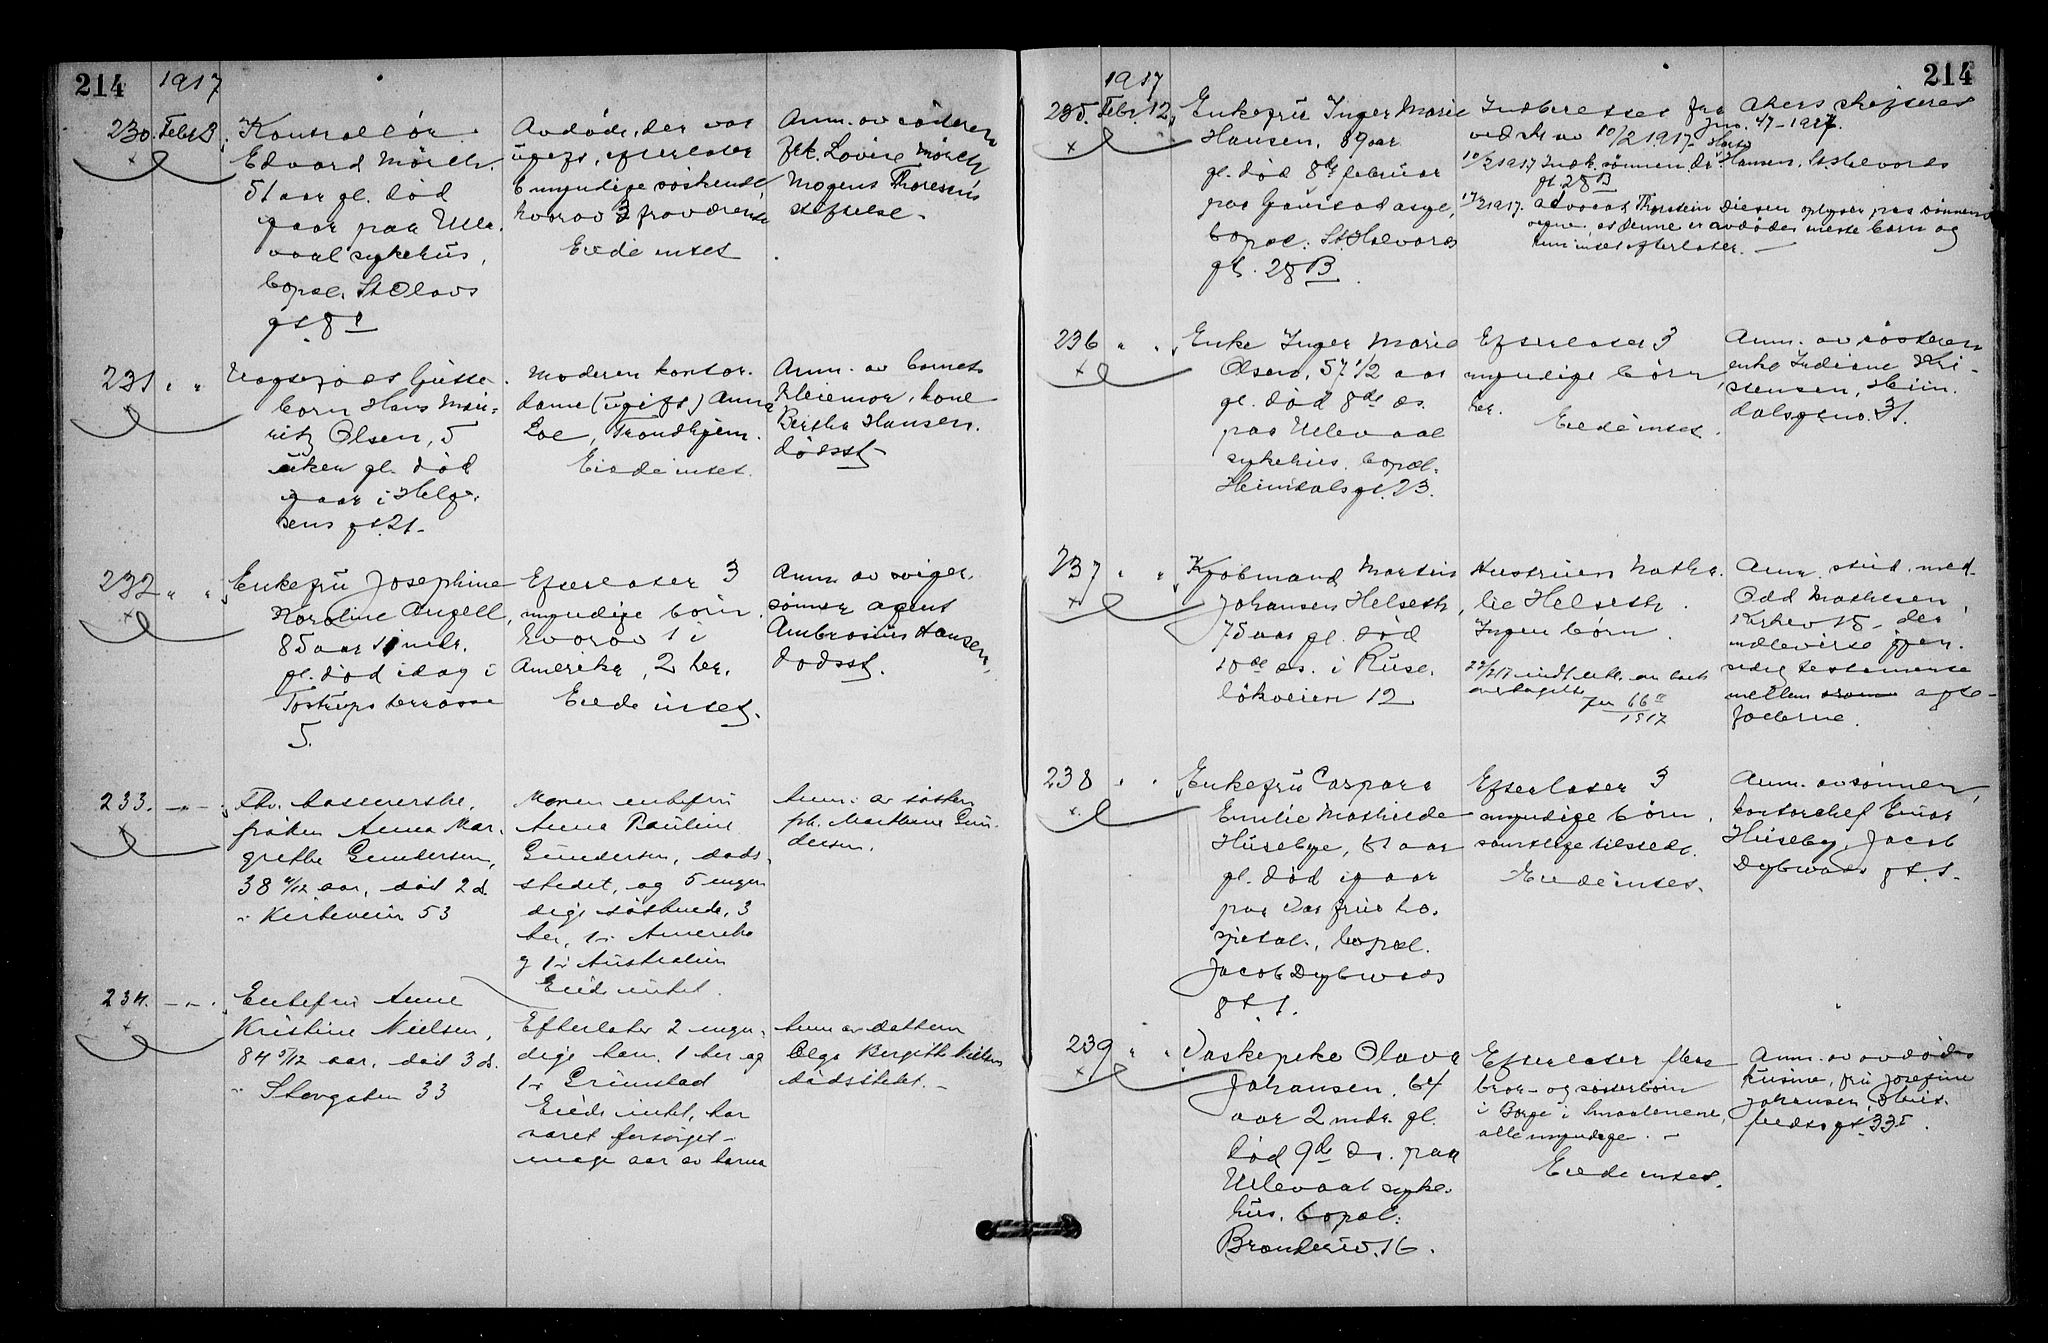 214
1917
230. Febr.
Kontrollør
Edvard Mörch.
51 aar gl. död
igaar paa Ulle-
vaal sykehus,
bopæl. St Olavs
gt. 8
Avdöde, der var
ugift, efterlater
6 myndige söskende
hvorav 3 fraværende
Eiede intet
Anm. av söstren
frk. Lovise Mörch
Mogens Thoresens
stiftelse.
231 " "
born Hans Mau-
ritz Olsen, 5
uker gl. död
igaar i Helge-
sens gt. 21.
Moderen kontor-
dame (ugift) Anna
Loe, Trondhjem.
Eiede intet.
Anm. av barnets
pleiemor, kone
Bertha Hansen.
dödsst.
232 " "
Enkefru Josephine
Karoline Angell,
85 aar 11 mdr.
gl. död idag i
Tostrups terrasse
5.
Efterlater 3
myndige börn
hvorav 1 i
Amerika, 2 her.
Eiede intet.
Anm. av sviger-
sönnen agent
Ambrosius Hansen,
dödsst.
233. - " -
Fhv.
fröken Anna Mar-
grethe Gundersen,
38 aar, död 2 d.
i Kirkeveien 53
Moren enkefru
Anna Pauline
Gundersen, döds-
stedet, og 5 myn-
dige söskende, 3
her, 1 i Amerika
og 1 i Australien
Eiede intet.
Anm. av søsteren
frk. Marthine Gun-
dersen.
234. - " -
Enkefru Anne
Kristine Nielsen,
84 aar, död 3 ds.
i Storgaten 33
Efterlater 2 myn-
dige barn. 1 her og
1 i Grimstad
Eiede intet, har
været forsörget
mange aar av barna
Anm av datteren
Olga Birgitte Nielsen
dödsstedet.
1917
214
235. Febr. 12.
Enkefru Inger Marie
Hansen, 89 aar
gl. död 8de februar
paa Gaustad asyl,
bopæl: St. Halvards
gt. 28 B.
Indberettet fra Akers skifteret
ved skr av 10/2 1917. Jno. 47-1917.
sönnen Dr. Hansen, St. Halvards
gt. 28 B
advokat Thorstein Diesen oplyser paa sönnens
vegne, at denne er avdödes eneste barn og
hun intet efterlater.
236 " "
Enke Inger Marie
Olsen, 57 1/2 aar
gl. död 8de ds.
paa Ullevaal
sykehus, bopæl.
Heimdalsgt. 23.
Efterlater 3
myndige börn,
her.
Eiede intet.
Anm. av søsteren
enke Indiane Kri-
stensen, Heim-
dalsgt no. 31.
237 " "
Kjöbmand Martin
Johansen Helseth,
75 aar gl. död
10de ds. i Ruse-
lökveien 12
Hustruen Matha-
lie Helseth.
Ingen börn.
1917
Anm. stud. med.
Odd Mathesen,
Kirkev 15, der
indleverte gjen-
sidig testamente
mellem ægte-
fællerne.
238 " "
Enkefru Caspara
Emilie Mathilde
Huseby, 61 aar
gl. död igaar
paa Vor frue ho-
spital, bopæl.
Jacob Dybwads
gt. 1.
Efterlater 3
myndige börn,
samtlige tilstede.
Eiede intet.
Anm. av sönnen,
kontorchef Einar
Huseby, Jacob
Dybwads gt. 1.
239 " "
Vaskepike Olava
Johansen, 64
aar 2 mdr. gl.
död 9de ds. paa
Ullevaal syke-
hus, bopæl:
16.
Efterlater flere
bror- og sösterbörn
i Borge i Smaalenene,
alle myndige.
Eiede intet.
Anm. av avdödes
kusine, fru Josefine
Johansen,